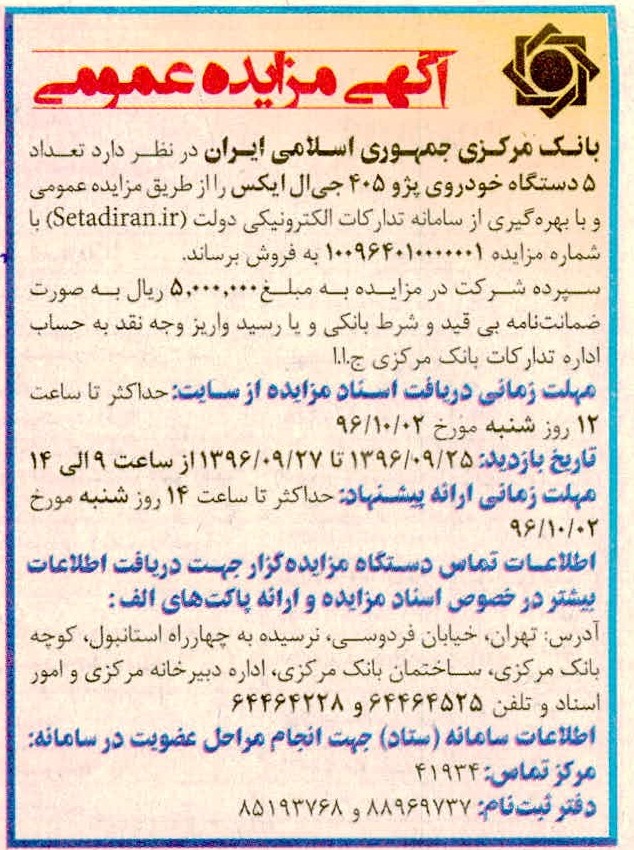 آگهی مزایده عمومی
بانک مرکزی جمهوری اسلامی ایران در نظر دارد تعداد
۵ دستگاه خودروی پژو ۴۰۵ جی‌ال ایکس را از طریق مزایده عمومی
و با بهره‌گیری از سامانه تدارکات الکترونیکی دولت (Setadiran.ir) با
شماره مزایده ۱۰۰۹۶۴۰۱۰۰۰۰۰۰۱ به فروش برساند.
سپرده شرکت در مزایده به مبلغ ۵,۰۰۰,۰۰۰ ریال به صورت
ضمانت‌نامه بی قید و شرط بانکی و یا رسید واریز وجه نقد به حساب
اداره تدارکات بانک مرکزی ج.ا.ا
مهلت زمانی دریافت اسناد مزایده از سایت: حداکثر تا ساعت
۱۲ روز شنبه مورخ ۹۶/۱۰/۰۲
تاریخ بازدید: ۱۳۹۶/۰۹/۲۵ تا ۱۳۹۶/۰۹/۲۷ از ساعت ۹ الی ۱۴
مهلت زمانی ارائه پیشنهاد: حداکثر تا ساعت ۱۴ روز شنبه مورخ
۹۶/۱۰/۰۲
اطلاعات تماس دستگاه مزایده‌گزار جهت دریافت اطلاعات
بیشتر در خصوص اسناد مزایده و ارائه پاکت‌های الف:
آدرس: تهران، خیابان فردوسی، نرسیده به چهارراه استانبول، کوچه
بانک مرکزی، ساختمان بانک مرکزی، اداره دبیرخانه مرکزی و امور
اسناد و تلفن ۶۴۴۶۴۵۲۵ و ۶۴۴۶۴۲۲۸
اطلاعات سامانه (ستاد) جهت انجام مراحل عضویت در سامانه:
مرکز تماس: ۴۱۹۳۴
دفتر ثبت‌نام: ۸۸۹۶۹۷۳۷ و ۸۵۱۹۳۷۶۸